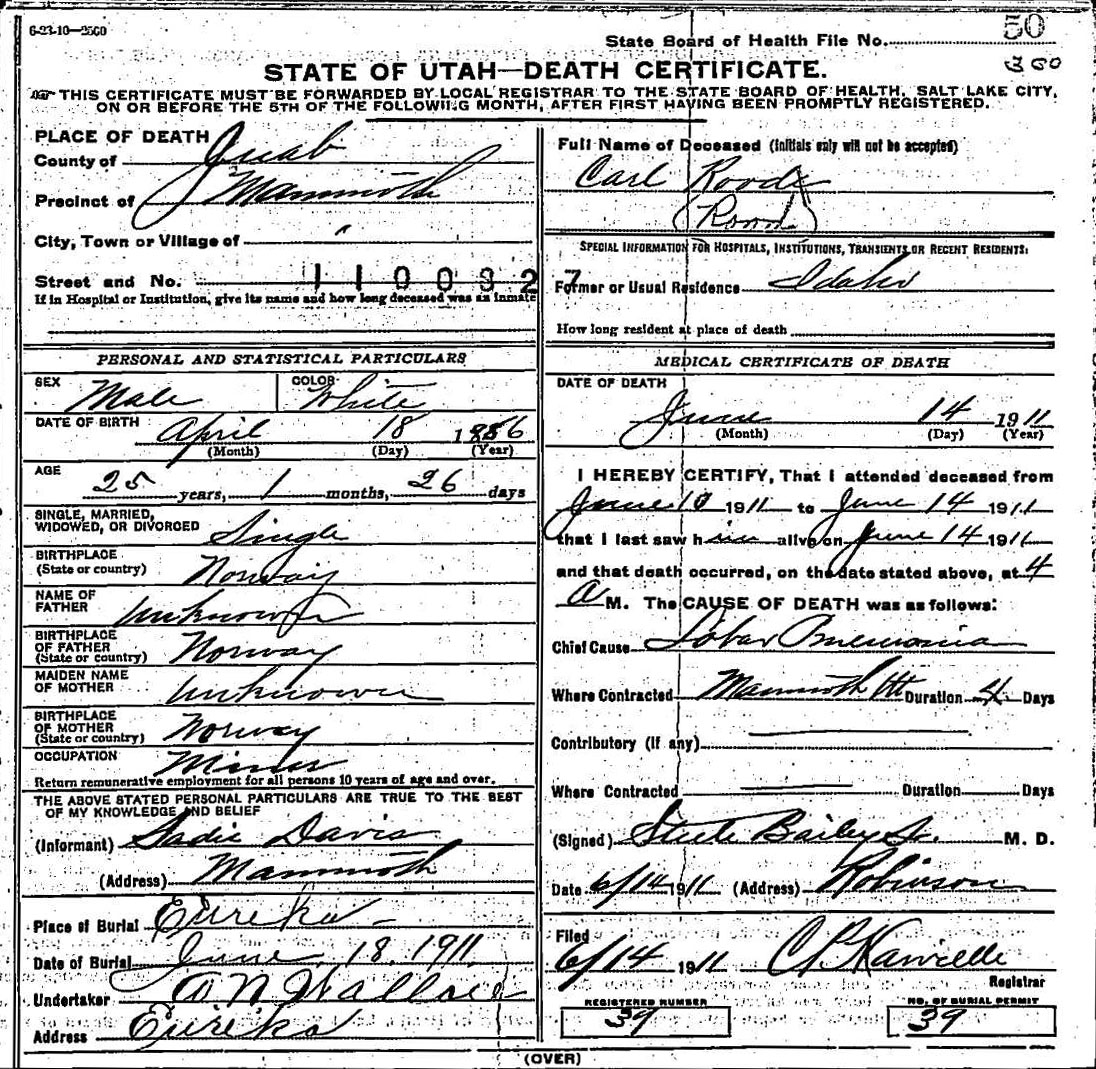 6-23-10—2500
50
State Board of Health File No.
360
STATE OF UTAH—DEATH CERTIFICATE.
THIS CERTIFICATE MUST BE FORWARDED BY LOCAL REGISTRAR TO THE STATE BOARD OF HEALTH, SALT LAKE CITY,
ON OR BEFORE THE 5TH OF THE FOLLOWING MONTH, AFTER FIRST HAVING BEEN PROMPTLY REGISTERED.
PLACE OF DEATH
County of Juab
Precinct of Mammoth
City, Town or Village of "
Street and No. 1100327
If in Hospital or Institution, give its name and how long deceased was an inmate
PERSONAL AND STATISTICAL PARTICULARS
SEX Male COLOR White
DATE OF BIRTH April 18 1886
(Month) (Day) (Year)
AGE
25 years, 1 months, 26 days
SINGLE, MARRIED,
WIDOWED, OR DIVORCED Single
BIRTHPLACE
(State or country) Norway
NAME OF
FATHER Unknown
BIRTHPLACE
OF FATHER
(State or country) Norway
MAIDEN NAME
OF MOTHER Unknown
BIRTHPLACE
OF MOTHER
(State or country) Norway
OCCUPATION Miner
Return remunerative employment for all persons 10 years of age and over.
THE ABOVE STATED PERSONAL PARTICULARS ARE TRUE TO THE BEST
OF MY KNOWLEDGE AND BELIEF
(Informant) Sadie Davis
(Address) Mammoth
Place of Burial Eureka
Date of Burial June 18, 1911
Undertaker A N Wallace
Address Eureka
Full Name of Deceased (Initials only will not be accepted)
Carl Roode
(Rood)
SPECIAL INFORMATION FOR HOSPITALS, INSTITUTIONS, TRANSIENTS OR RECENT RESIDENTS:
Former or Usual Residence Idaho
How long resident at place of death
MEDICAL CERTIFICATE OF DEATH
DATE OF DEATH
June 14 1911
(Month) (Day) (Year)
I HEREBY CERTIFY, That I attended deceased from
June 10 1911 to June 14 1911
that I last saw him alive on June 14 1911
and that death occurred, on the date stated above, at 4
A M. The CAUSE OF DEATH was as follows:
Chief Cause Lobar Pneumonia
Where Contracted Mammoth Ut Duration 4 Days
Contributory (if any)
Where Contracted Duration Days
(Signed) Steele Bailey Jr. M. D.
Date 6/14 1911 (Address) Robinson
Filed
6/14 1911
Registrar
REGISTERED NUMBER
39
NO. OF BURIAL PERMIT
39
(OVER)